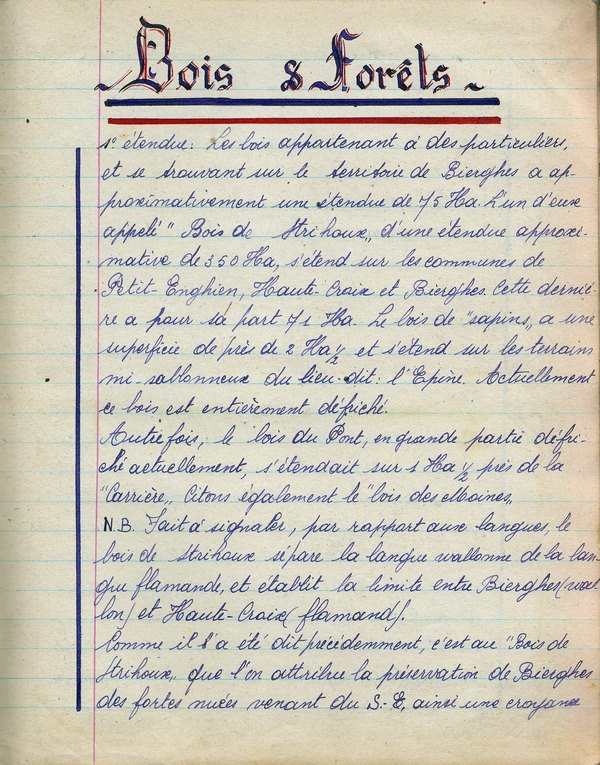 Bois & Forêts
1° étendue: Les bois appartenant à des particuliers,
et se trouvant sur le territoire de Bierghes a ap-
proximativement une étendue de 75 Ha. L'un d'eux
appelé "Bois de Strihoux„ d'une etendue approxi-
mative de 350 Ha, s'étend sur les communes de
Petit-Enghien, Haute-Croix et Bierghes. Cette derniè-
re a pour sa part 71 Ha. Le bois de "sapins„ a une
superficie de près de 2 Ha ½ et s'étend sur les terrains
mi-sablonneux du lieu-dit: l'Epine. Actuellement
ce bois est entièrement défriché.
Autrefois, le bois du Pont, en grande partie défri-
ché actuellement, s'étendait sur 1 Ha ½ près de la
"Carrière„ Citons également le "bois des Moines„
N.B. Fait à signaler, par rapport aux langues, le
bois de Strihoux sépare la langue wallonne de la lan-
gue flamande, et établit la limite entre Bierghes (wal
lon) et Haute-Croix (flamand).
Comme il l'a été dit précédemment, c'est au "Bois de
Strihoux„ que l'on attribue la préservation de Bierghes
des fortes nuées venant du S-E, ainsi une croyance